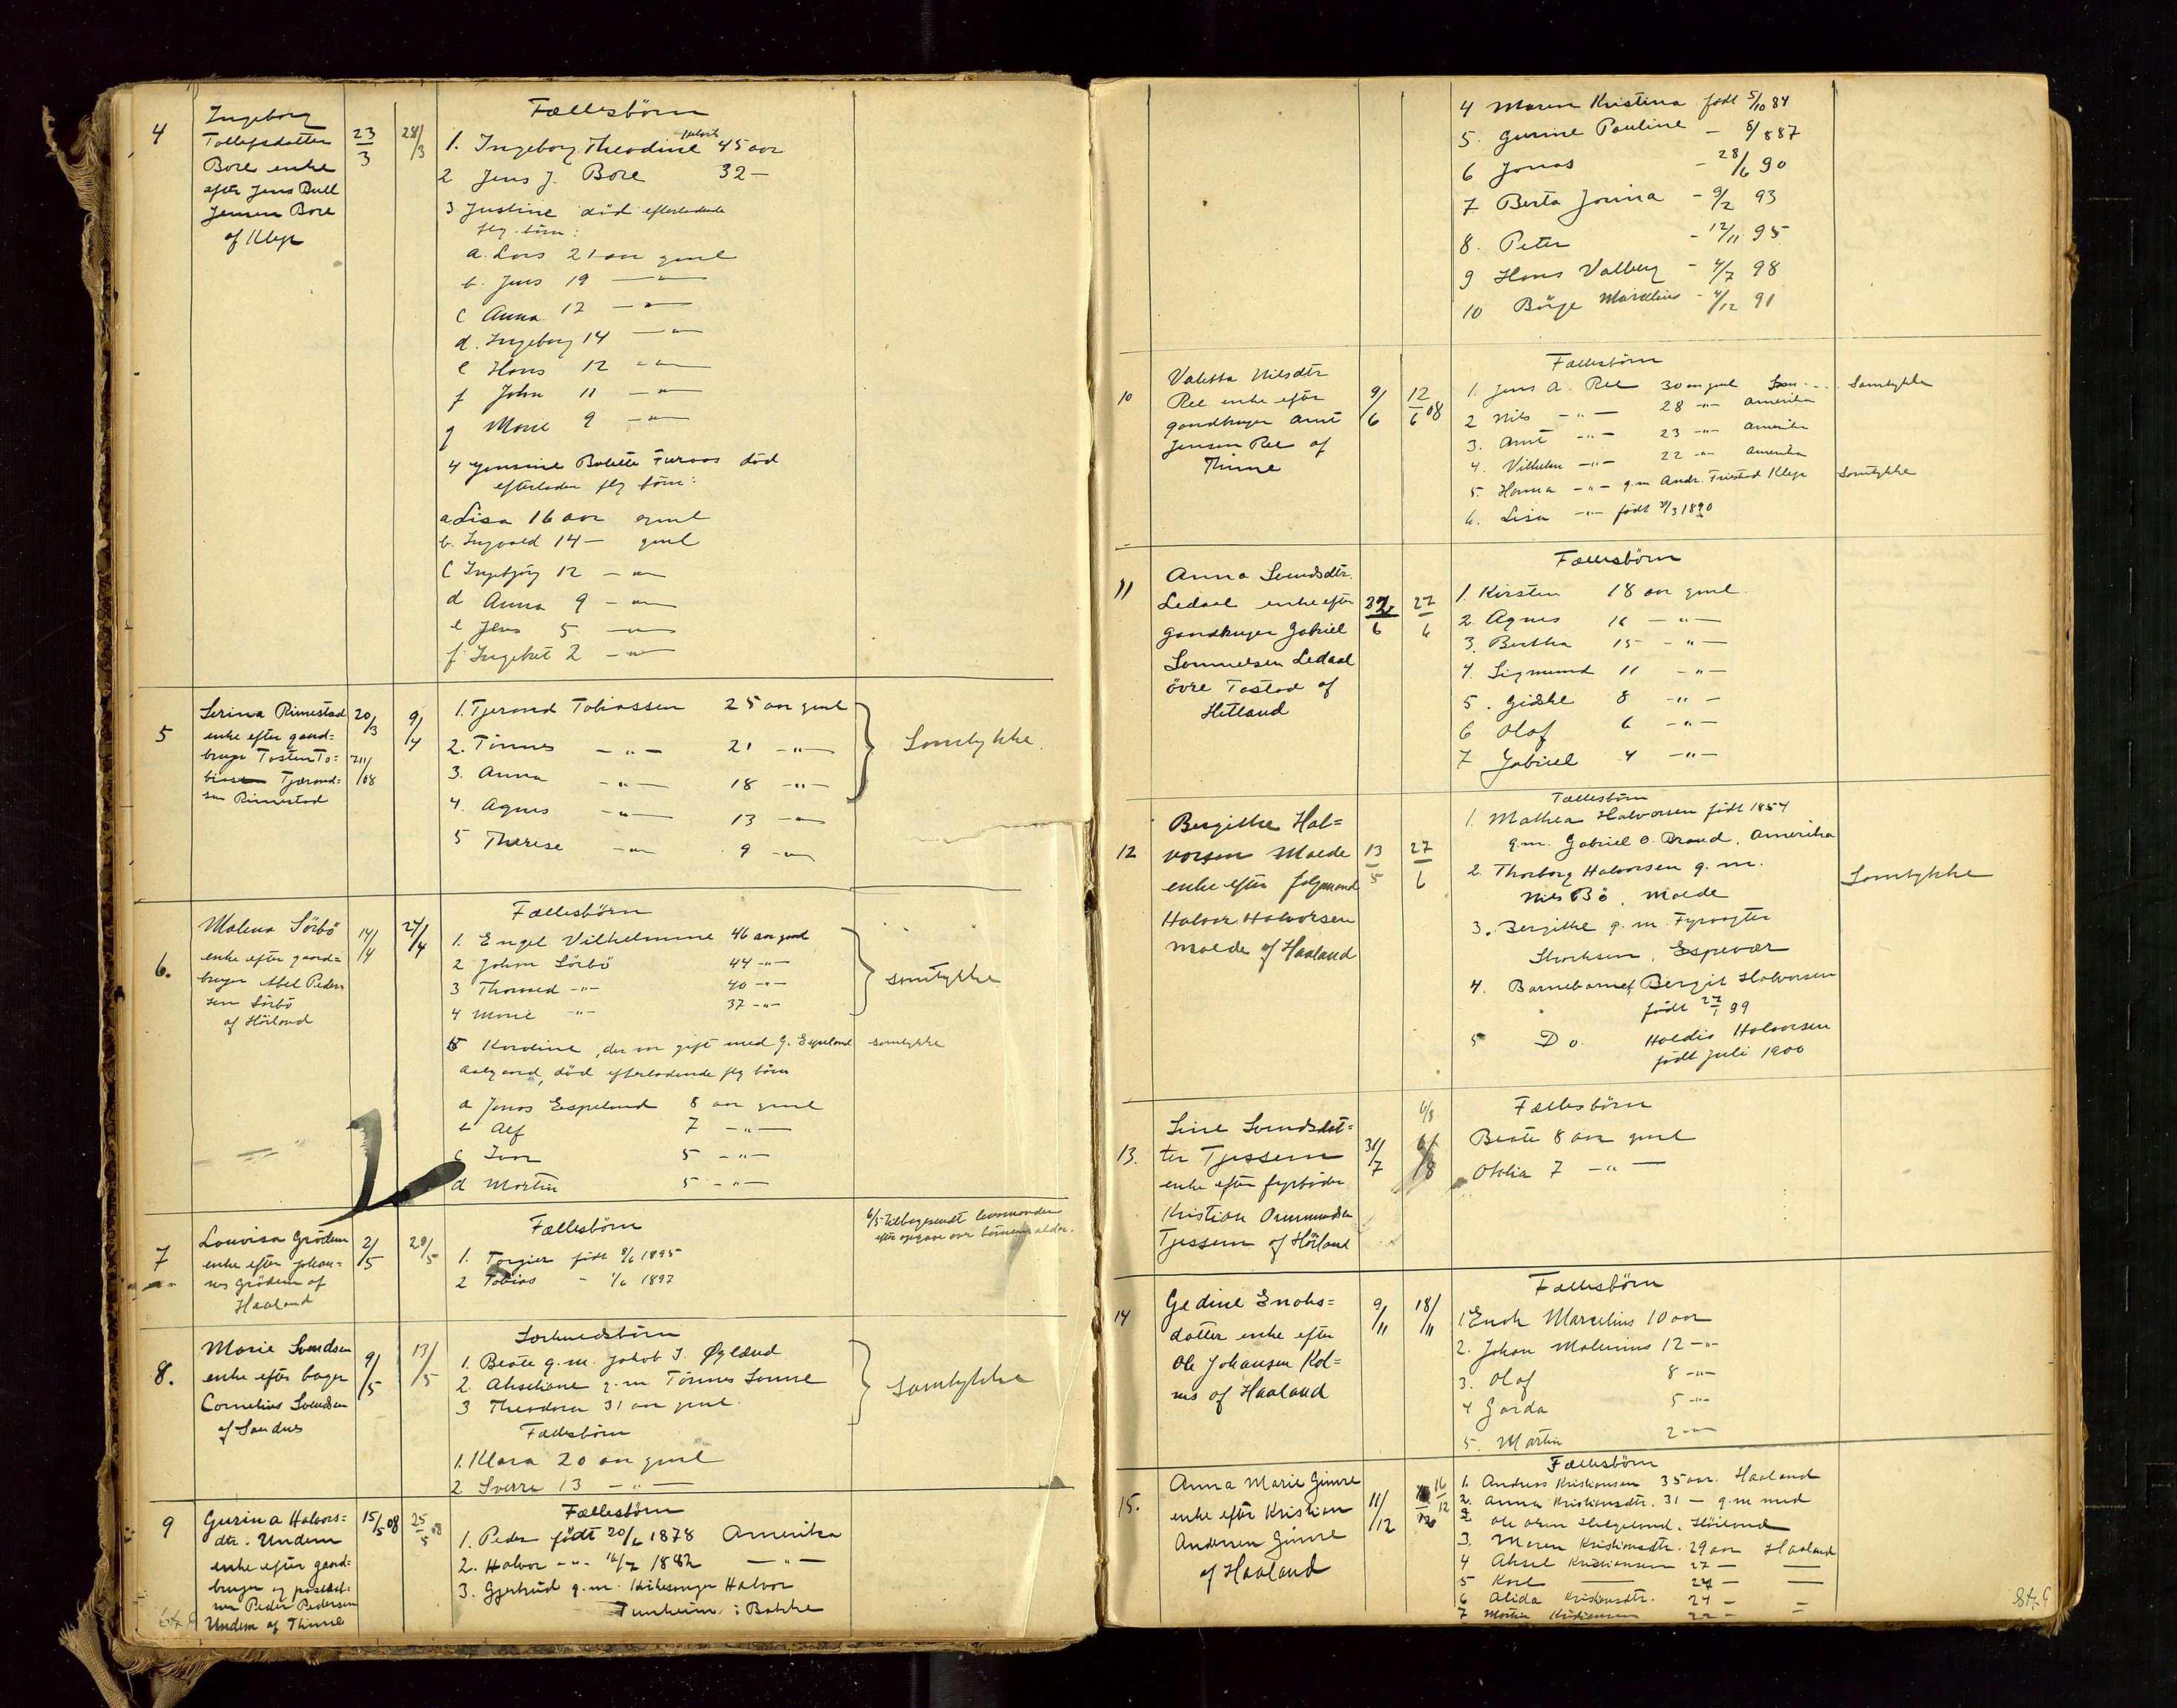 4
Ingeborg
Tollefsdatter
Bore enke
efter Jens Bull
Jensen Bore
af Klep
23/3
28/3
Fællesbörn
1. Ingeborg Theodine 45 aar
2 Jens J. Bore 32 —
3 Justine död efterladende
flg. börn:
a. Lars 21 aar gml
b. Jens 19 — " —
c Anna 12 — " —
d. Ingeborg 14 — " —
e Hans 12 — " —
f John 11 — " —
g Marie 9 — " —
4 Jensine Bolette Furaas död
efterlader flg börn:
a Lisa 16 aar gml
b. Ingvald 14 — gml
c Ingebjörg 12 — " —
d Anna 9 — " —
e Jens 5 — " —
f Ingebret 2 — " —
5
Serina Rimestad
enke efter gaard=
bruger Tosten To=
biasen Tjerand=
sen Rimestad
20/3
9/4
1. Tjerand Tobiassen 25 aar gml
2. Tönnes — " — 21 — " —
3. Anna — " — 18 — " —
4. Agnes — " — 13 — " —
5 Therese — " — 9 — " —
Samtykke.
6.
Malena Sörbö
enke efter gaard=
bruger Abel Peder=
sen Sörbö
af Höiland
14/4
27/4
Fællesbörn
1. Engel Vilhelmine 46 aar gml
2 Johan Sörbö 44 — " —
3 Thomed — " — 40 — " —
4 Marie — " — 37 — " —
samtykke
5 Karoline, der var gift med G. Espeland
Aalgaard, död efterladende flg börn
samtykke
a Jonas Espeland 8 aar gml
b Alf 7 — " —
c Ivar 5 — " —
d Martin 5 — " —
7
Lovisa Grödem
enke efter Johan=
nes Grödem af
Haaland
2/5
29/5
Fællesbörn
1. Torgier født 8/6 1895
2 Tobias - 1/6 1897
6/5 tilbagesendt lensmanden
efter opgave over börnenes alder.
8.
Marie Svendsen
enke efter bager
Cornelius Svendsen
af Sandnes
9/5
13/5
Særkuldsbörn
1. Beate g.m. Jakob J. Øglænd
2. Akseliane g.m Tönnes Sunne
3 Theodora 31 aar gml.
Samtykke
Fællesbörn
1. Klara 20 aar gml
2 Sverre 13 — " —
9
Gurina Halvors=
dtr. Undem
enke efter gaard=
bruger og
Peder Pedersen
Undem af Thime
15/5 08
25/5 08
Fællesbörn
1. Peder født 20/6 1878 Amerika
2. Halvor — " — 16/7 1882 — " —
3. Gjertrud g.m. kirkesanger Halvor
Tunheim i Bakke
4 Maren Kristina født 5/10 84
5. Gurine Pauline — 8/8 87
6 Jonas - 28/6 90
7 Berta Jonina - 9/2 93
8. Peter - 12/11 95
9 Hans Valberg - 4/7 98
10 Börge Marselius - 4/12 91
10
Valetta Nilsdtr
Ree enke efter
gaardbruger Arnt
Jensen Ree af
Thime
9/6
12/6 08
Fællesbörn
1. Jens A. Ree 30 aar gml
Samtykke
2 Nils — " — 28 — " — Amerika
3. Arnt — " — 23 — " — Amerika
4. Vilhelm — " — 22 — " — Amerika
5. Hanna — " — g.m Andr. Friestad Klep
Samtykke
6. Lisa — " — født 3/3 1890
11
Anna Svendsdtr.
Ledaal enke efter
gaardbruger Gabriel
Samuelsen Ledaal
övre Tastad af
Hetland
22/6
27/6
Fællesbörn
1. Kirsten 18 aar gml
2. Agnes 16 — " —
3. Bertha 15 — " —
4. Sigmund 11 — " —
5. Gidske 8 — " —
6 Olaf 6 — " —
7 Gabriel 4 — " —
12
Bergithe Hal=
vorsen Malde
enke efter
Halvor Halvorsen
Malde af Haaland
13/5
27/6
Fællesbörn
1. Mathea Halvorsen født 1854
g.m. Gabriel O. Braud, Amerika
2. Thorborg Halvorsen g.m.
Nils Bö, Malde
Samtykke
3. Bergithe g.m. Fyrvogter
Espevær
4. Barnebarnet Bergit Halvorsen
født 27/1 99
5 Do. Haldis Halvorsen
født juli 1900
13.
Sine Svendsdat=
ter Tjessem
enke efter fyrböder
Kristian Ommundsen
Tjessem af Höiland
31/7
6/8
6/8
Fællesbörn
Beate 8 aar gml
Othlia 7 — " —
14
Gedine Enoks=
datter enke efter
Ole Johansen Kol=
nes af Haaland
9/11
18/11
Fællesbörn
1 Enok Marselius 10 aar
2. Johan Malenius 12 — " —
3. Olaf 8 — " —
4 Garda 5 — " —
5. Martin 2 — " —
15.
Anna Marie Gimre
enke efter Kristian
Andersen Gimre
af Haaland
11/12
16/12
Fællesbörn
1. Andreas Kristiansen 35 aar. Haaland
2. Anna Kristiansdtr. 31 — g.m med
Ole Helgeland. Höiland
3. Maren Kristiansdtr. 29 aar Haaland
4 Aksel Kristiansen 27 —
5 Karl 24 —
6 Alida Kristiansdtr. 24 —
7 Martin Kristiansen 22 —